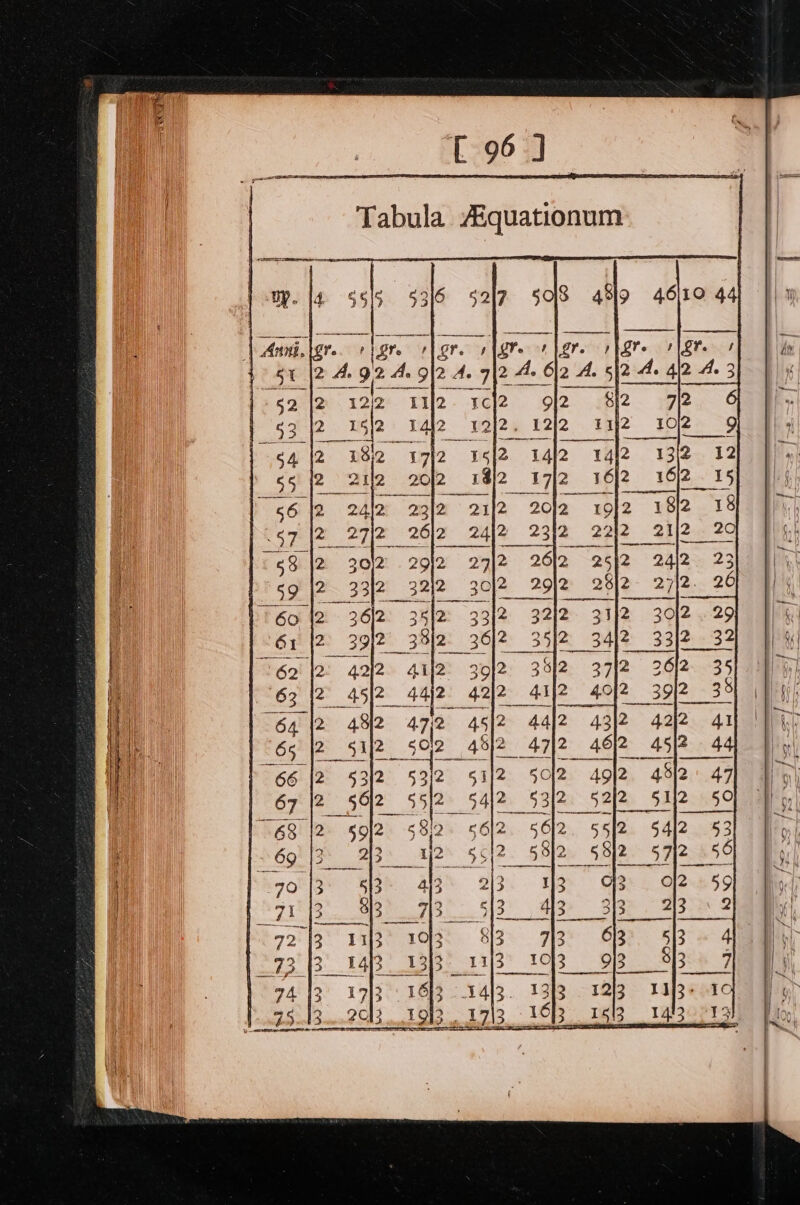 [ 96 ]
Tabula Æquationum
♍. |4 55|5 53|6 52|7 50|8 48|9 46|10 44
Anni. |gr. '|gr. '|gr. '|gr. '|gr. '|gr. '|gr. '
51 |2 A. 9|2 A. 9|2 A. 7|2 A. 6|2 A. 5|2 A. 4|2 A. 3
52 |2 12|2 11|2 10|2 9|2 8|2 7|2 6
53 |2 15|2 14|2 12|2 12|2 11|2 10|2 9
54 |2 18|2 17|2 15|2 14|2 14|2 13|2 12
55 |2 21|2 20|2 18|2 17|2 16|2 16|2 15
56 |2 24|2 23|2 21|2 20|2 19|2 18|2 18
57 |2 27|2 26|2 24|2 23|2 22|2 21|2 20
58 |2 30|2 29|2 27|2 26|2 25|2 24|2 23
59 |2 33|2 32|2 30|2 29|2 28|2 27|2 26
60 |2 36|2 35|2 33|2 32|2 31|2 30|2 29
61 |2 39|2 38|2 36|2 35|2 34|2 33|2 32
62 |2 42|2 41|2 39|2 38|2 37|2 36|2 35
63 |2 45|2 44|2 42|2 41|2 40|2 39|2 38
64 |2 48|2 47|2 45|2 44|2 43|2 42|2 41
65 |2 51|2 50|2 48|2 47|2 46|2 45|2 44
66 |2 53|2 53|2 51|2 50|2 49|2 48|2 47
67 |2 56|2 55|2 54|2 53|2 52|2 51|2 50
68 |2 59|2 58|2 56|2 56|2 55|2 54|2 53
69 |3 2|3 1|2 55|2 58|2 58|2 57|2 56
70 |3 5|3 4|3 2|3 1|3 0|3 0|2 59
71 |3 8|3 7|3 5|3 4|3 3|3 2|3 2
72 |3 11|3 10|3 8|3 7|3 6|3 5|3 4
73 |3 14|3 13|3 11|3 10|3 9|3 8|3 7
74 |3 17|3 16|3 14|3 13|3 12|3 11|3 10
75 |3 20|3 19|3 17|3 16|3 15|3 14|3 13